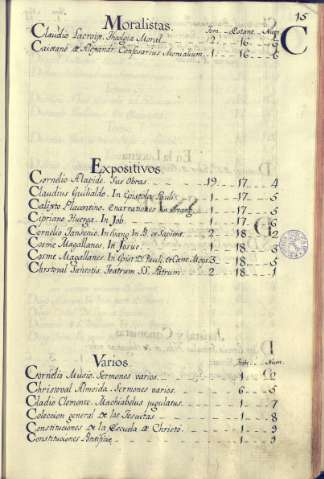 15
C
Moralistas.
Tom. Estant. Num.
Claudio Lacroix. Theologia Moral. 2. 16. 5
Caietano de Alexandr. Confesarius Monialium. 1 16 6
Expositivos.
Cornelio Alapide. Sus Obras. 19 17 4
Claudius Guilialdo. In Epistolas Pauli. 1 17 5
Calixto Placentino. Enarrationes in Evang. 1 17 5
Cipriano Huerga. In Job. 1 17 6
Cornelio Jansenio. In Evang. In 18 2
Cosme Magallanes. In Josue. 1 18 5
Cosme Magallanes. In Epist. D. Pauli, 3 18 5
Christoval Teatrum SS. Patrum 2 18 1
Varios.
Tom. Num.
Cornelio Musio. Sermones varios. 1 2
Christoval Almeida. Sermones varios. 6 5
Cladio Clemente. Machiabelus jugulatus. 1 7
Coleccion general de las Jesuitas 1 8
Constituciones de la Escuela de Christo. 1 9
Constituciones 1 9